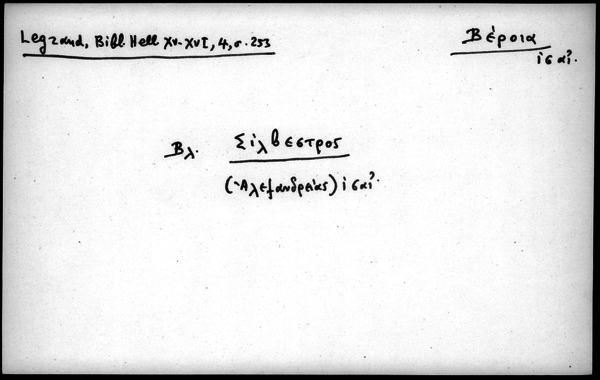 Legrand, Bibl. Hell XV-XVI, 4, σ. 253
Βέροια
ις αἰ.
Βλ. Σίλβεστρος
(Ἀλεξανδρείας) ις αἰ.